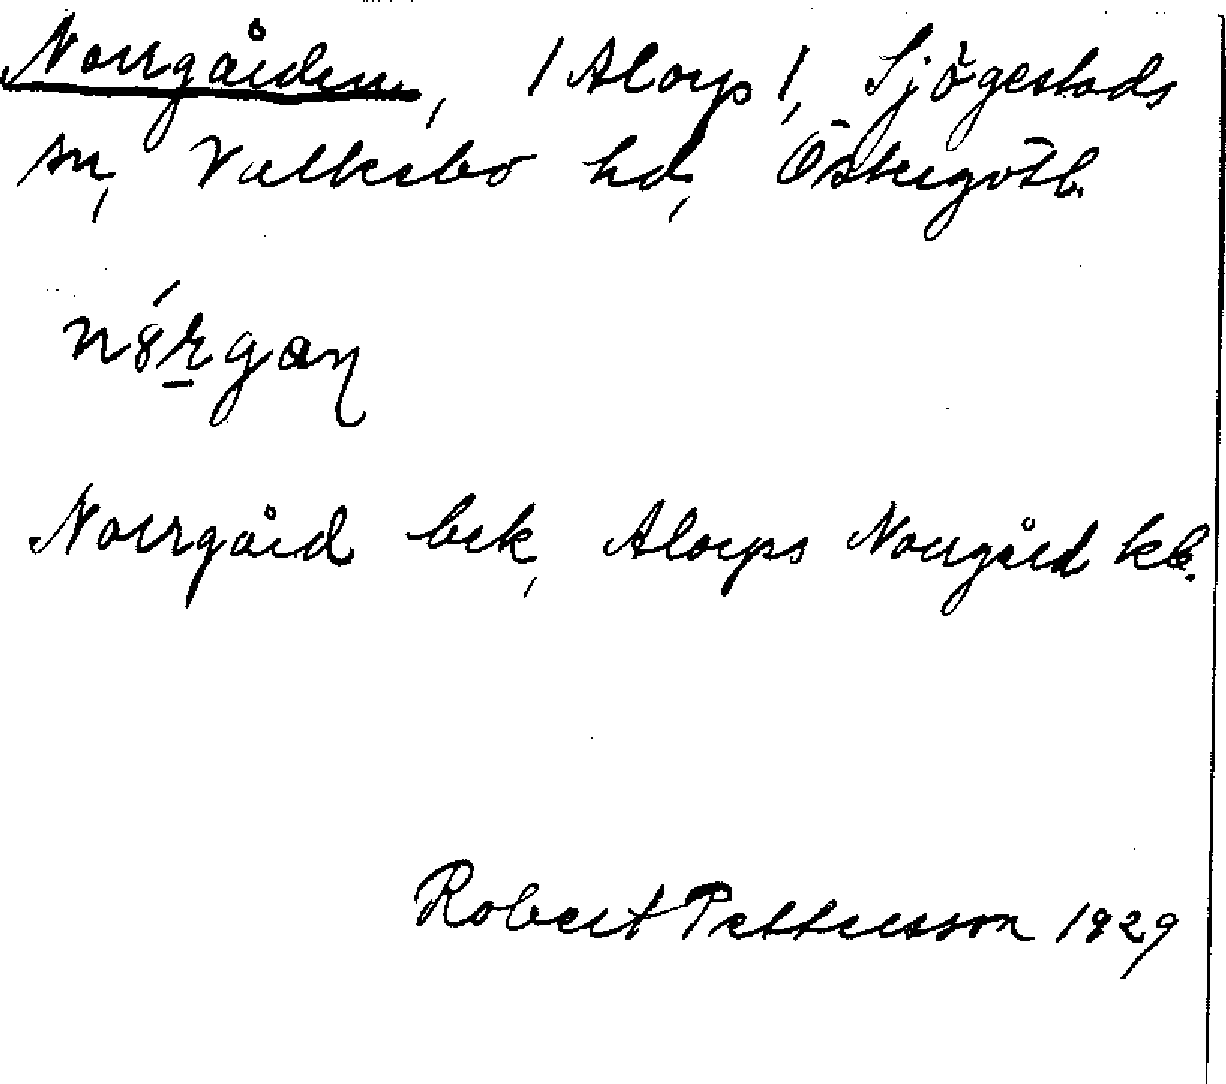 Norrgården, / Alorp /, Sjögestads
sn, Valkebo hd, Östergötl.
nórgan
Norrgård bek, Alorps Norrgård kb.
Robert Pettersson 1929